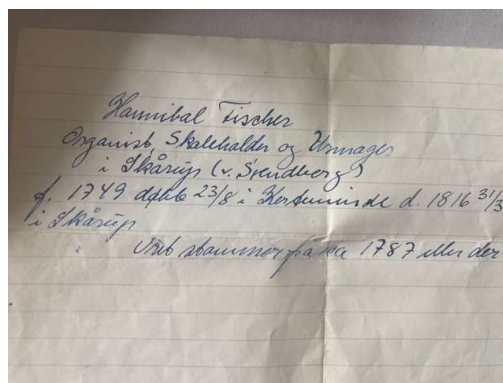 Hannibal Fischer
Organist, Skoleholder og Urmager
i Skårup (v. Svendborg)
f. 1749 døbt 23/8 i Kerteminde d. 1816 31/3
i Skårup
stammer fra ca 1787 eller der